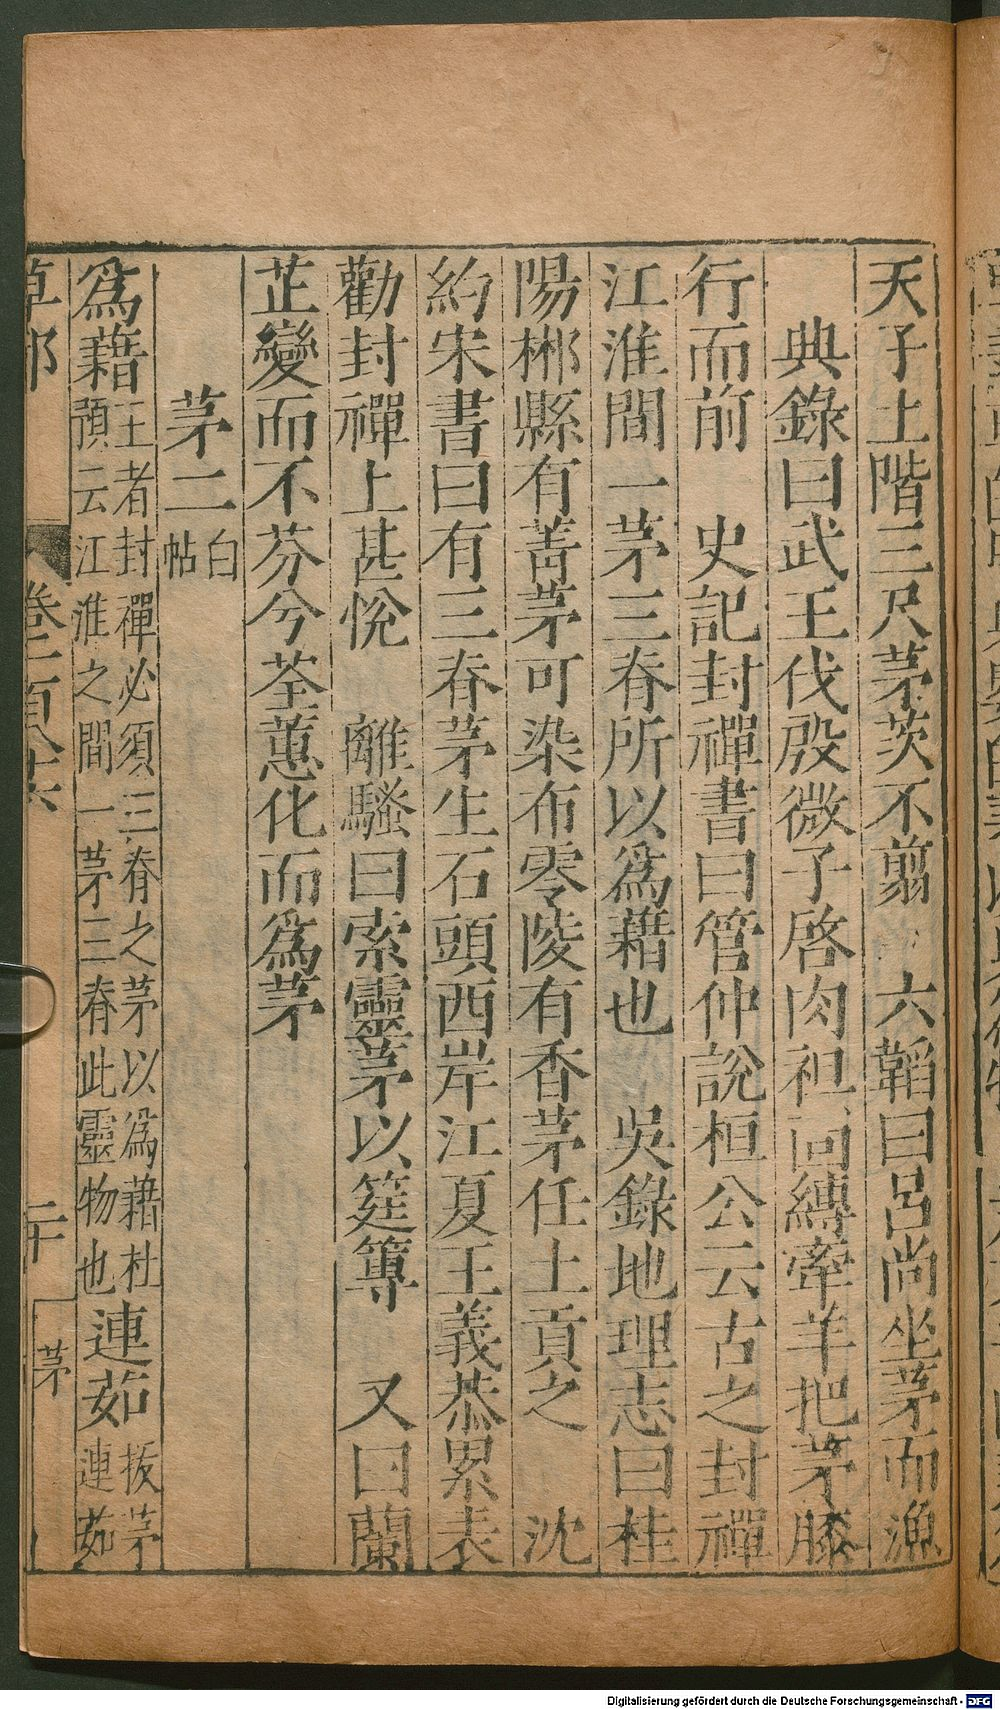 天子土階三尺茅茨不翦　六韜曰呂尚坐茅而漁
典錄曰武王伐殷微子啓肉袒面縛牽羊把茅膝
行而前　史記封禪書曰管仲說桓公云古之封禪
江淮間一茅三脊所以爲藉也　吳錄地理志曰桂
陽郴縣有菁茅可染布零陵有香茅任土貢之　沈
約宋書曰有三脊茅生石頭西岸江夏王義恭累表
勸封禪上甚悅　離騷曰索靈茅以筳篿　又曰蘭
芷變而不芬兮荃蕙化而爲茅
茅二 白帖
爲藉 王者封禪必須三脊之茅以爲藉杜
預云江淮之間一茅三脊此靈物也 連茹 拔茅
連茹
草部 卷二百 二十 茅
Digitalisierung gefördert durch die Deutsche Forschungsgemeinschaft - DFG